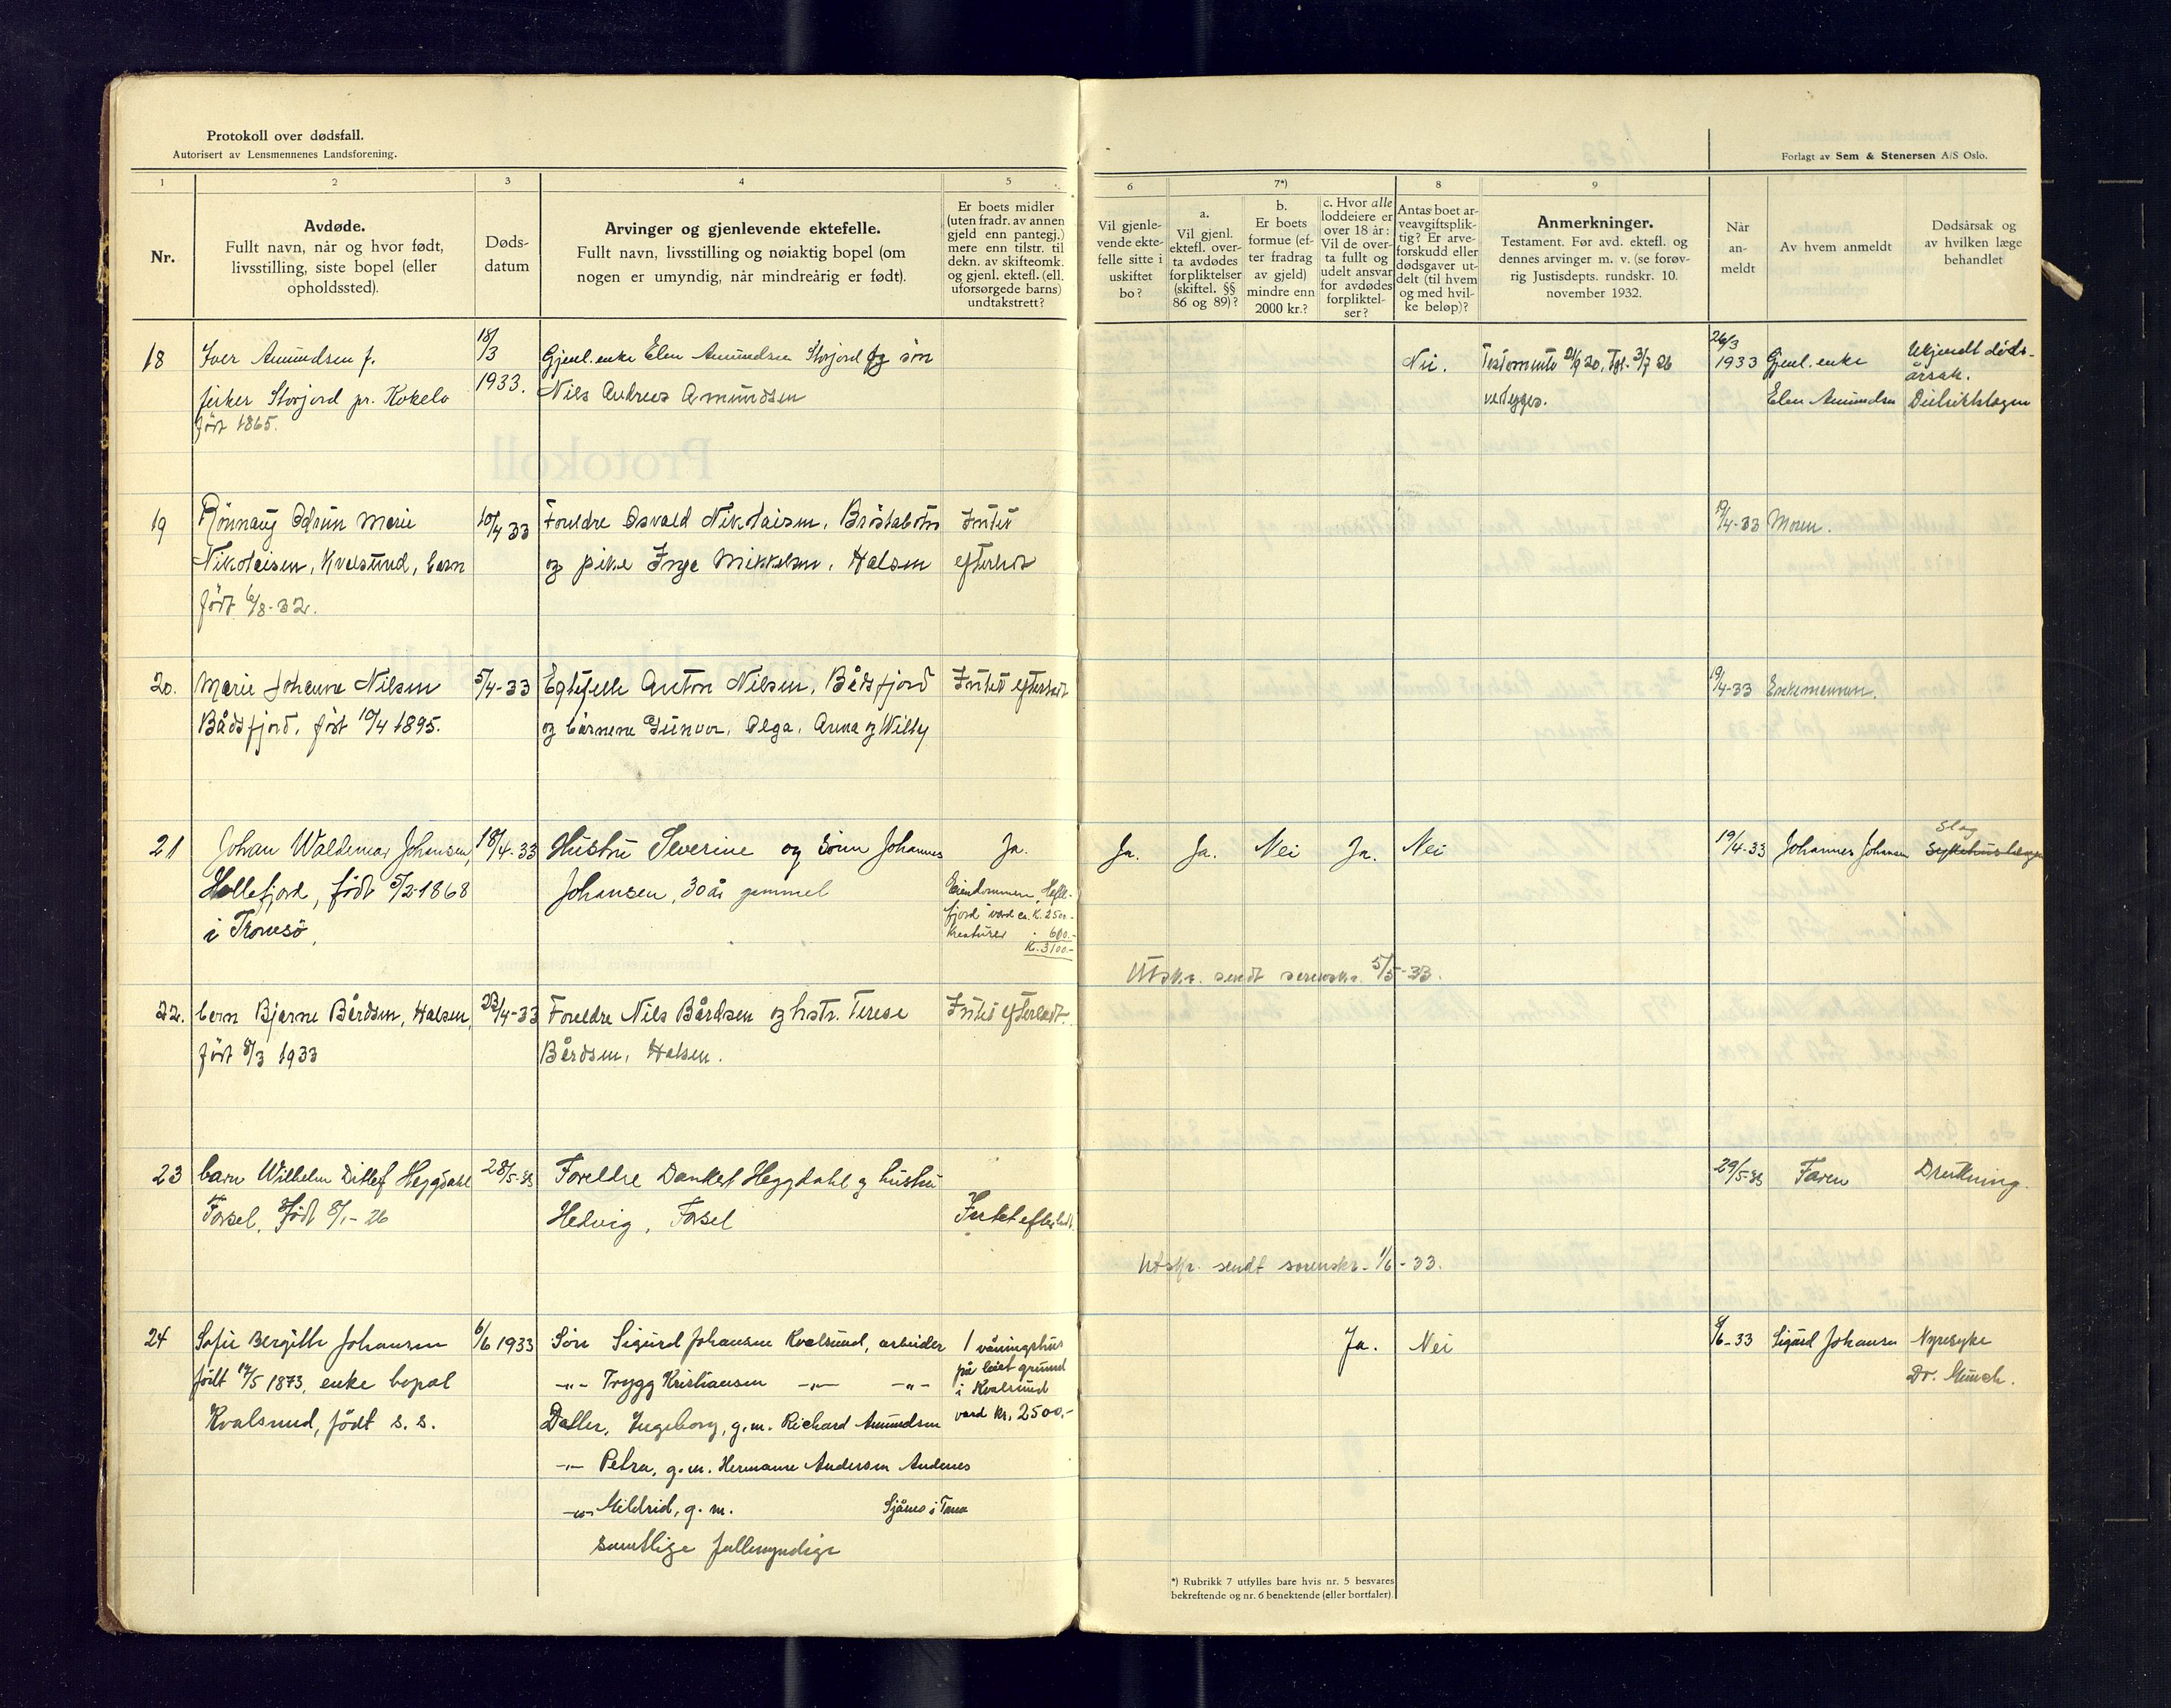 Protokoll over dødsfall.
Autorisert av Lensmennenes Landsforening.
Forlagt av Sem & Stenersen A/S Oslo.
1
2
3
4
5
6
7*)
8
9
Nr.
Avdøde.
Fullt navn, når og hvor født,
livsstilling, siste bopel (eller
opholdssted).
Døds-
datum
Arvinger og gjenlevende ektefelle.
Fullt navn, livsstilling og nøiaktig bopel (om
nogen er umyndig, når mindreårig er født).
Er boets midler
(uten fradr. av annen
gjeld enn pantegj.)
mere enn tilstr. til
dekn. av skifteomk.
og gjenl. ektefl. (ell.
uforsørgede barns)
undtakstrett?
Vil gjenle-
vende ekte-
felle sitte i
uskiftet
bo?
a.
Vil gjenl.
ektefl. over-
ta avdødes
forpliktelser
(skiftel. §§
86 og 89)?
b.
Er boets
formue (ef-
ter fradrag
av gjeld)
mindre enn
2000 kr.?
c. Hvor alle
loddeiere er
over 18 år:
Vil de over-
ta fullt og
udelt ansvar
for avdødes
forpliktel-
ser?
Antas boet ar-
veavgiftsplik-
tig? Er arve-
forskudd eller
dødsgaver ut-
delt (til hvem
og med hvil-
ke beløp)?
Anmerkninger.
Testament. Før avd. ektefl. og
dennes arvinger m. v. (se forøv-
rig Justisdepts. rundskr. 10.
november 1932.
Når
an-
meldt
Av hvem anmeldt
Dødsårsak og
av hvilken læge
behandlet
18
Iver Amundsen f.
fisker Storjord pr. Kokelv
født 1865.
18/3
1933.
Gjenl. enke Elen Amundsen Storjord og søn
Nils Andreas Amundsen
Nei.
Testamente 21/9 20. Tgl. 3/7 26
vedlegges.
26/3
1933
Gjenl. enke
Elen Amundsen
Ukjendt døds-
årsak.
Distriktslægen
19
Rönnaug Odrun Marie
Nikolaisen, Kvalsund, barn
født 6/8-32.
10/4 33
Foreldre Osvald Nikolaisen, Bröstabotn
og pike Inga Mikkelsen, Halsen
Intet
efterladt
19/4-33
Moren.
20.
Marie Johanne Nilsen
Bådsfjord, født 10/4 1895.
5/4-33
Egtefelle Anton Nilsen, Bådsfjord
og barnene Gunvor, Olga, Anna og Willy
Intet efterladt
19/4-33
Enkemannen.
21
Johan Waldemar Johansen,
Hellefjord, født 5/2-1868
i Tromsö,
18/4-33
Hustru Severine og sönn Johannes
Johansen, 30 år gammel
Ja.
Eiendommen, Helle-
fjord" værd ca. K. 2500.-
Kreaturer - 600.-
K. 3100.-
Ja.
Ja.
Nei
Ja.
Nei
19/4-33
Johannes Johansen
Slag
Sykehuslæge
Utskr. sendt sorenskr. 5/5-33.
22.
barn Bjarne Bårdsen, Halsen,
født 8/3 1933
23/4-33
Foreldre Nils Bårdsen og hstr. Terese
Bårdsen, Halsen.
Intet efterladt.
23
barn Wilhelm Ditlef Heggdahl
Forsøl, Født 8/1-26
28/5-33
Foreldre Dankert Heggdahl og hustru
Hedvig, Forsøl
Intet efterladt.
29/5-33
Faren
Drukning.
Utskr. sendt sorenskr. 1/6-33.
24
Sofie Bergithe Johansen
født 14/5 1873, enke bopæl
Kvalsund, født s. s.
6/6 1933
Søn Sigurd Johansen Kvalsund, arbeider
-"- Trygg Kristiansen -"- -"-
Datter, Ingeborg, g.m. Richard Amundsen
-"- Petra, g.m. Hermann Andersen Andenes
-"- Mildrid, g. m. Sjånes i Tana
samtlige fullmyndige
1 våningshus
på leiet grund
i Kvalsund
værd kr. 2500.-
Ja.
Nei
8/6-33
Sigurd Johansen
Nyresyke
Dr. Munch.
*) Rubrikk 7 utfylles bare hvis nr. 5 besvares
bekreftende og nr. 6 benektende (eller bortfaller).